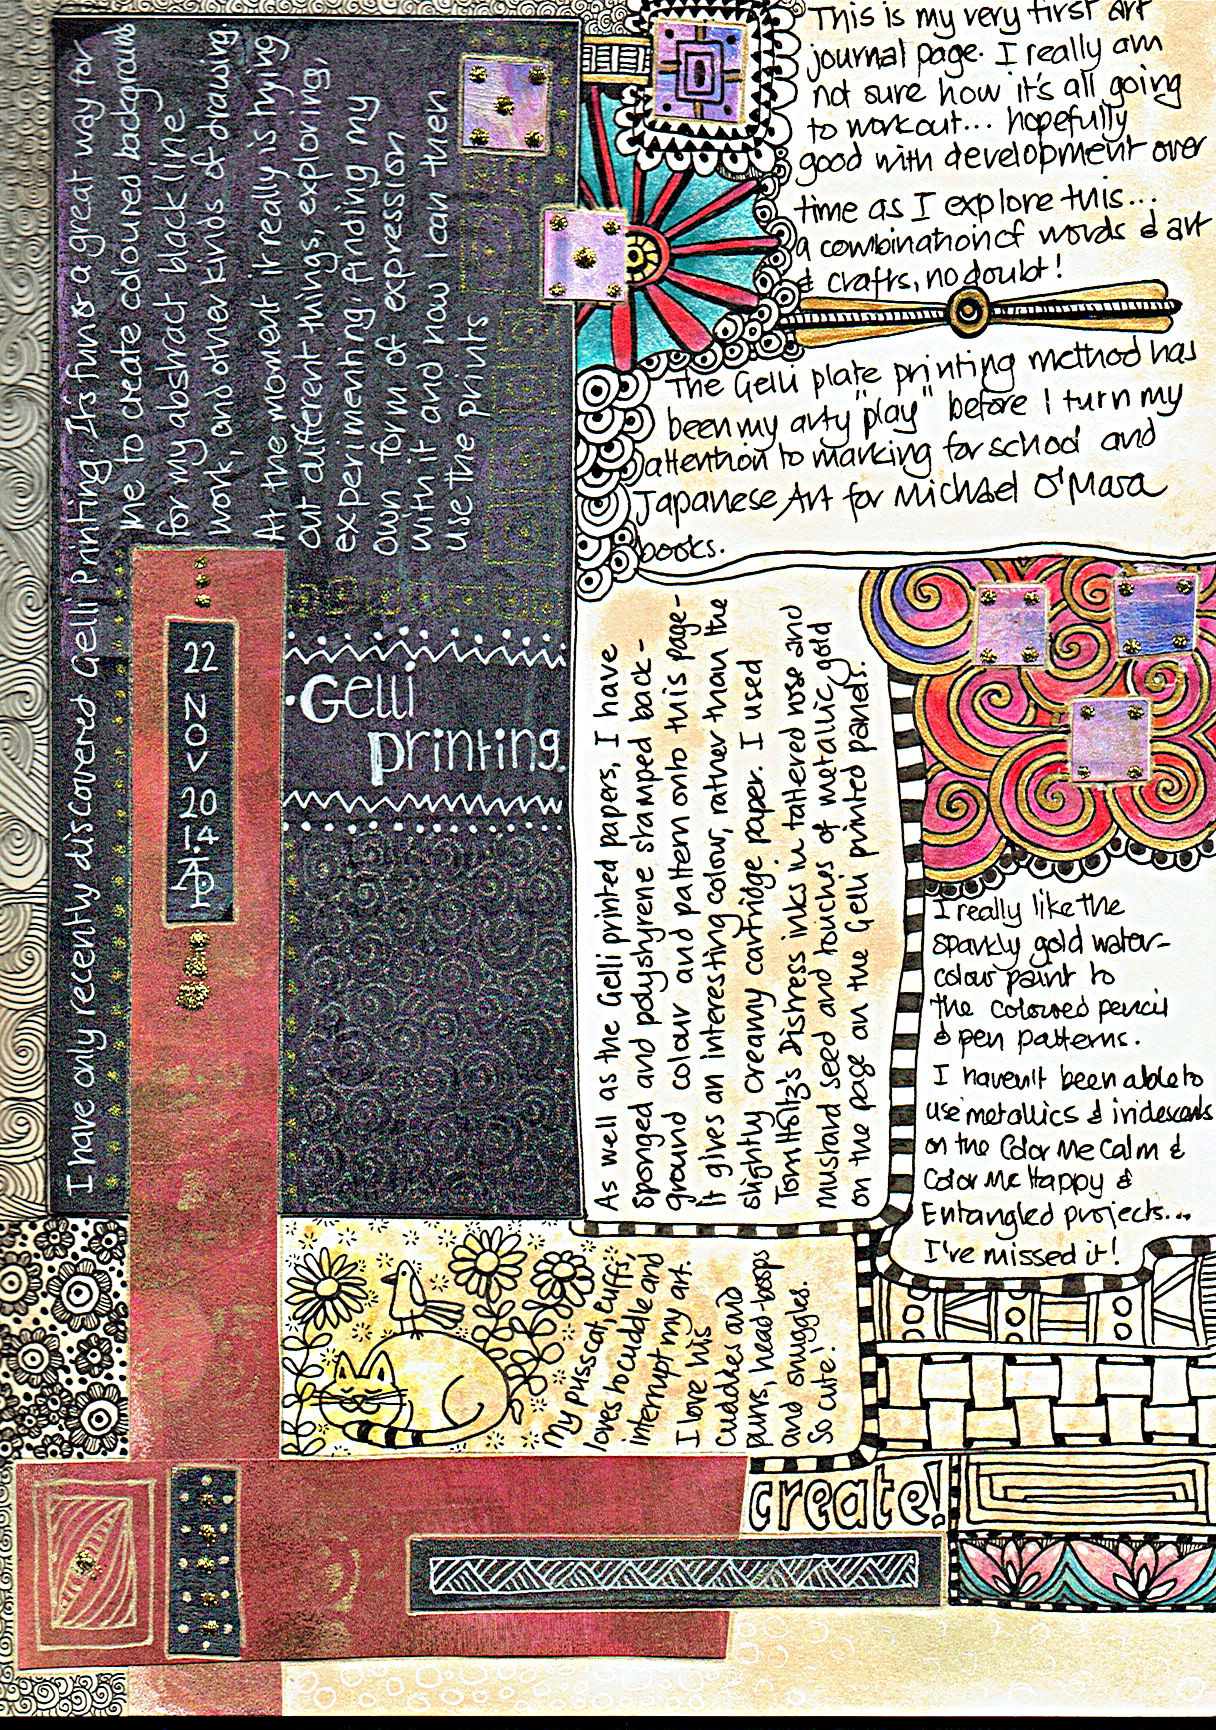 This is my very first art
journal page. I really am
not sure how it's all going
to work out... hopefully
good with development over
time as I explore this...
a combination of words & art
& crafts, no doubt!
The Gelli plate printing method has
been my arty "play" before I turn my
attention to marking for school and
Japanese Art for Michael O'Mara
books.
I have only recently discovered Gelli Printing. It's fun & a great way for
me to create coloured backgrounds
for my abstract back line
work, and other kinds of drawing
At the moment it really is trying
out different things, exploring,
experimenting, finding my
own form of expression
with it and now I can then
use the prints
22
NOV
20
14
Gelli
printing.
As well as the Gelli printed papers, I have
sponged and polystyrene stamped back-
ground colour and pattern onto this page -
it gives an interesting colour, rather than the
slightly creamy cartridge paper. I used
Tom Holtz's Distress inks in tattered rose and
mustard seed and touches of metallic gold
on the page on the Gelli printed panels.
I really like the
sparkly gold water-
colour paint to
the coloured pencil
& pen patterns.
I haven't been able to
use metallics & iridescents
on the Color Me Calm &
Color Me Happy &
Entangled projects...
I've missed it!
My pusscat, Cuffs,
loves to cuddle and
interrupt my art.
I love his
cuddles and
purrs, head-boops
and snuggles.
So cute!
create!